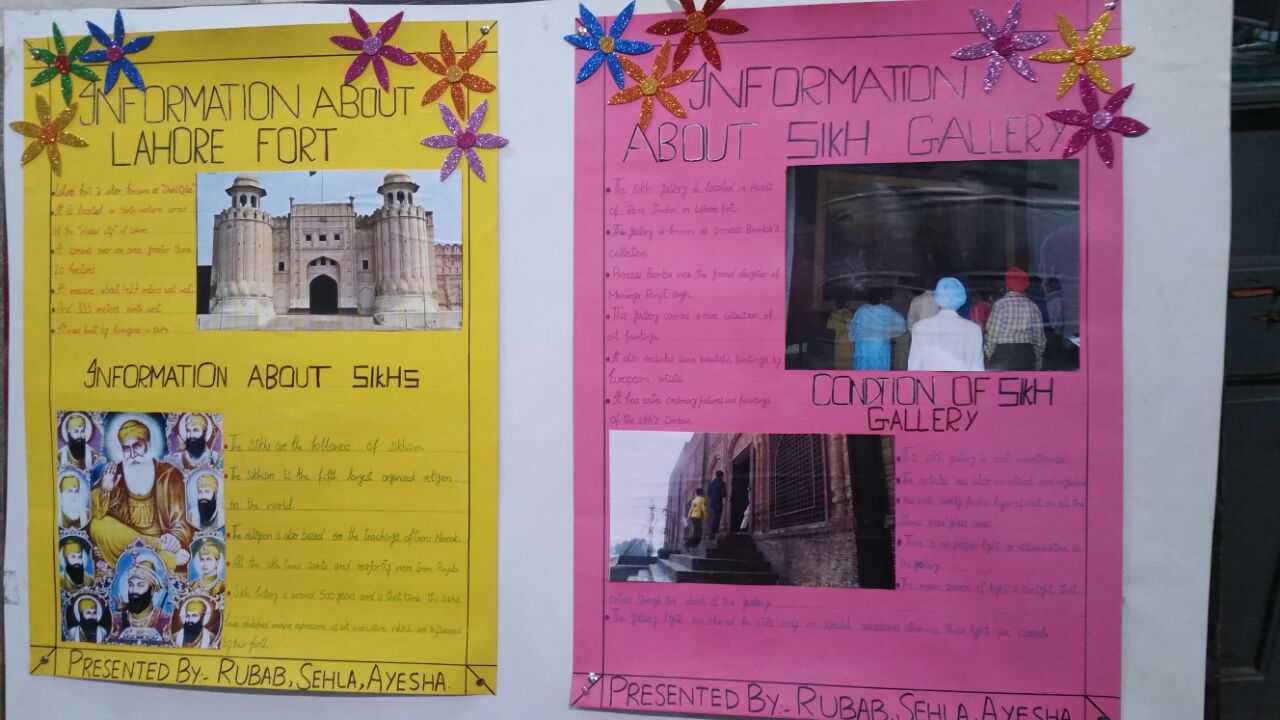 INFORMATION ABOUT
LAHORE FORT
Lahore fort is also known as "Shahi Qila"
It is located in North-western corner
of the "walled city" of Lahore.
It spreads over an area greater than
20 hectares.
It measure about 427 meters east west.
And 335 meters north west.
It was built by
INFORMATION ABOUT SIKHS
The Sikhs are the followers of sikhism.
The sikhism is the fifth largest organized religion
in the world.
The religion is also based on the teachings of Guru Nanak.
All the sikh Guru saints and majority were from Punjab.
Sikh history is around 500 years and in that time the sikhs
have developed unique expressions of art and culture which are influenced
by their
PRESENTED BY:- RUBAB, SEHLA, AYESHA.
INFORMATION
ABOUT SIKH GALLERY
The sikh gallery is located in Haveli
of Rani Jindan in Lahore fort.
This gallery is known as princess Bamba's
collection.
Princess Bamba was the grand daughter of
Maharaja Ranjit Singh.
This gallery carries a rare collection of
oil paintings.
It also includes some beautiful paintings by
European artists.
It has extra ordinary pictures and paintings
of the sikh's Darbar.
CONDTION OF SIKH
GALLERY
This sikh gallery is not maintained.
The articles are also
You will surely find a layer of dust on all the
items and glass
There is no proper light or illumination in
the gallery.
The main source of light is sunlight that
enters through the doors of the gallery.
The gallery lights are opened for VIPs only on special occasions otherwise these light are closed.
PRESENTED BY:- RUBAB, SEHLA, AYESHA